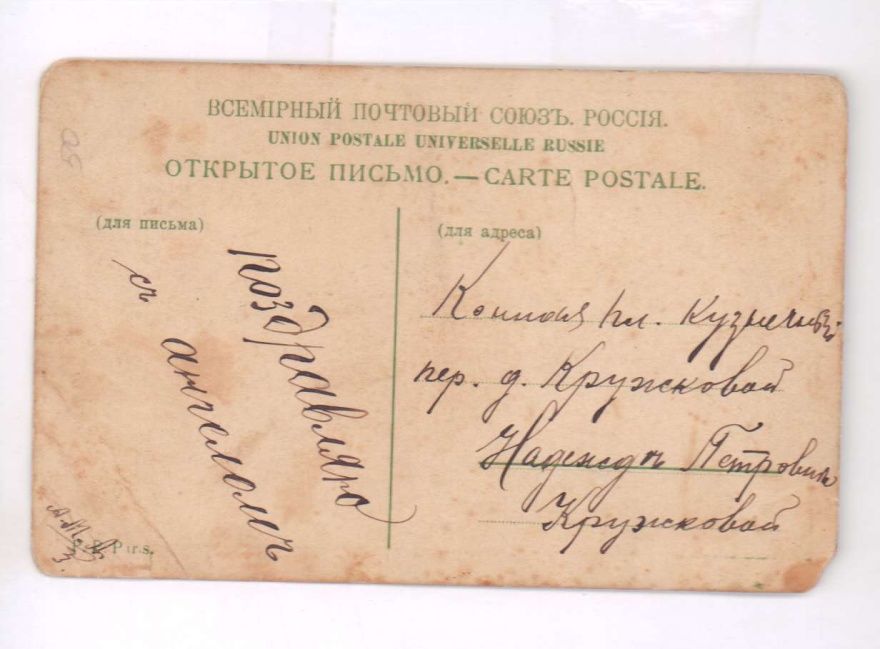 ВСЕМІРНЫЙ ПОЧТОВЫЙ СОЮЗЪ. РОССІЯ.
UNION POSTALE UNIVERSELLE RUSSIE
ОТКРЫТОЕ ПИСЬМО. — CARTE POSTALE.
(для письма)
поздравляю
съ ангеломъ
(для адреса)
Конная пл. Кузнечный
пер. д. Кружковой
Надеждѣ Петровнѣ
Кружковой